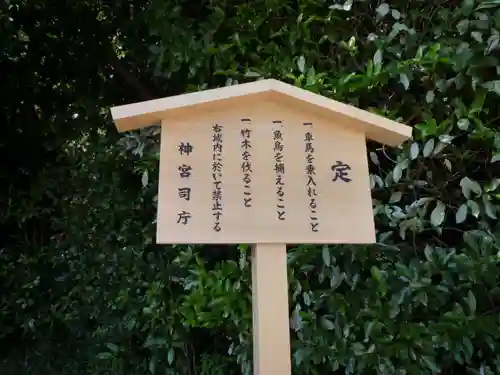 定
一 車馬を乗入れること
一 魚鳥を捕えること
一 竹木を伐ること
右域内に於いて禁止する
神宮司庁